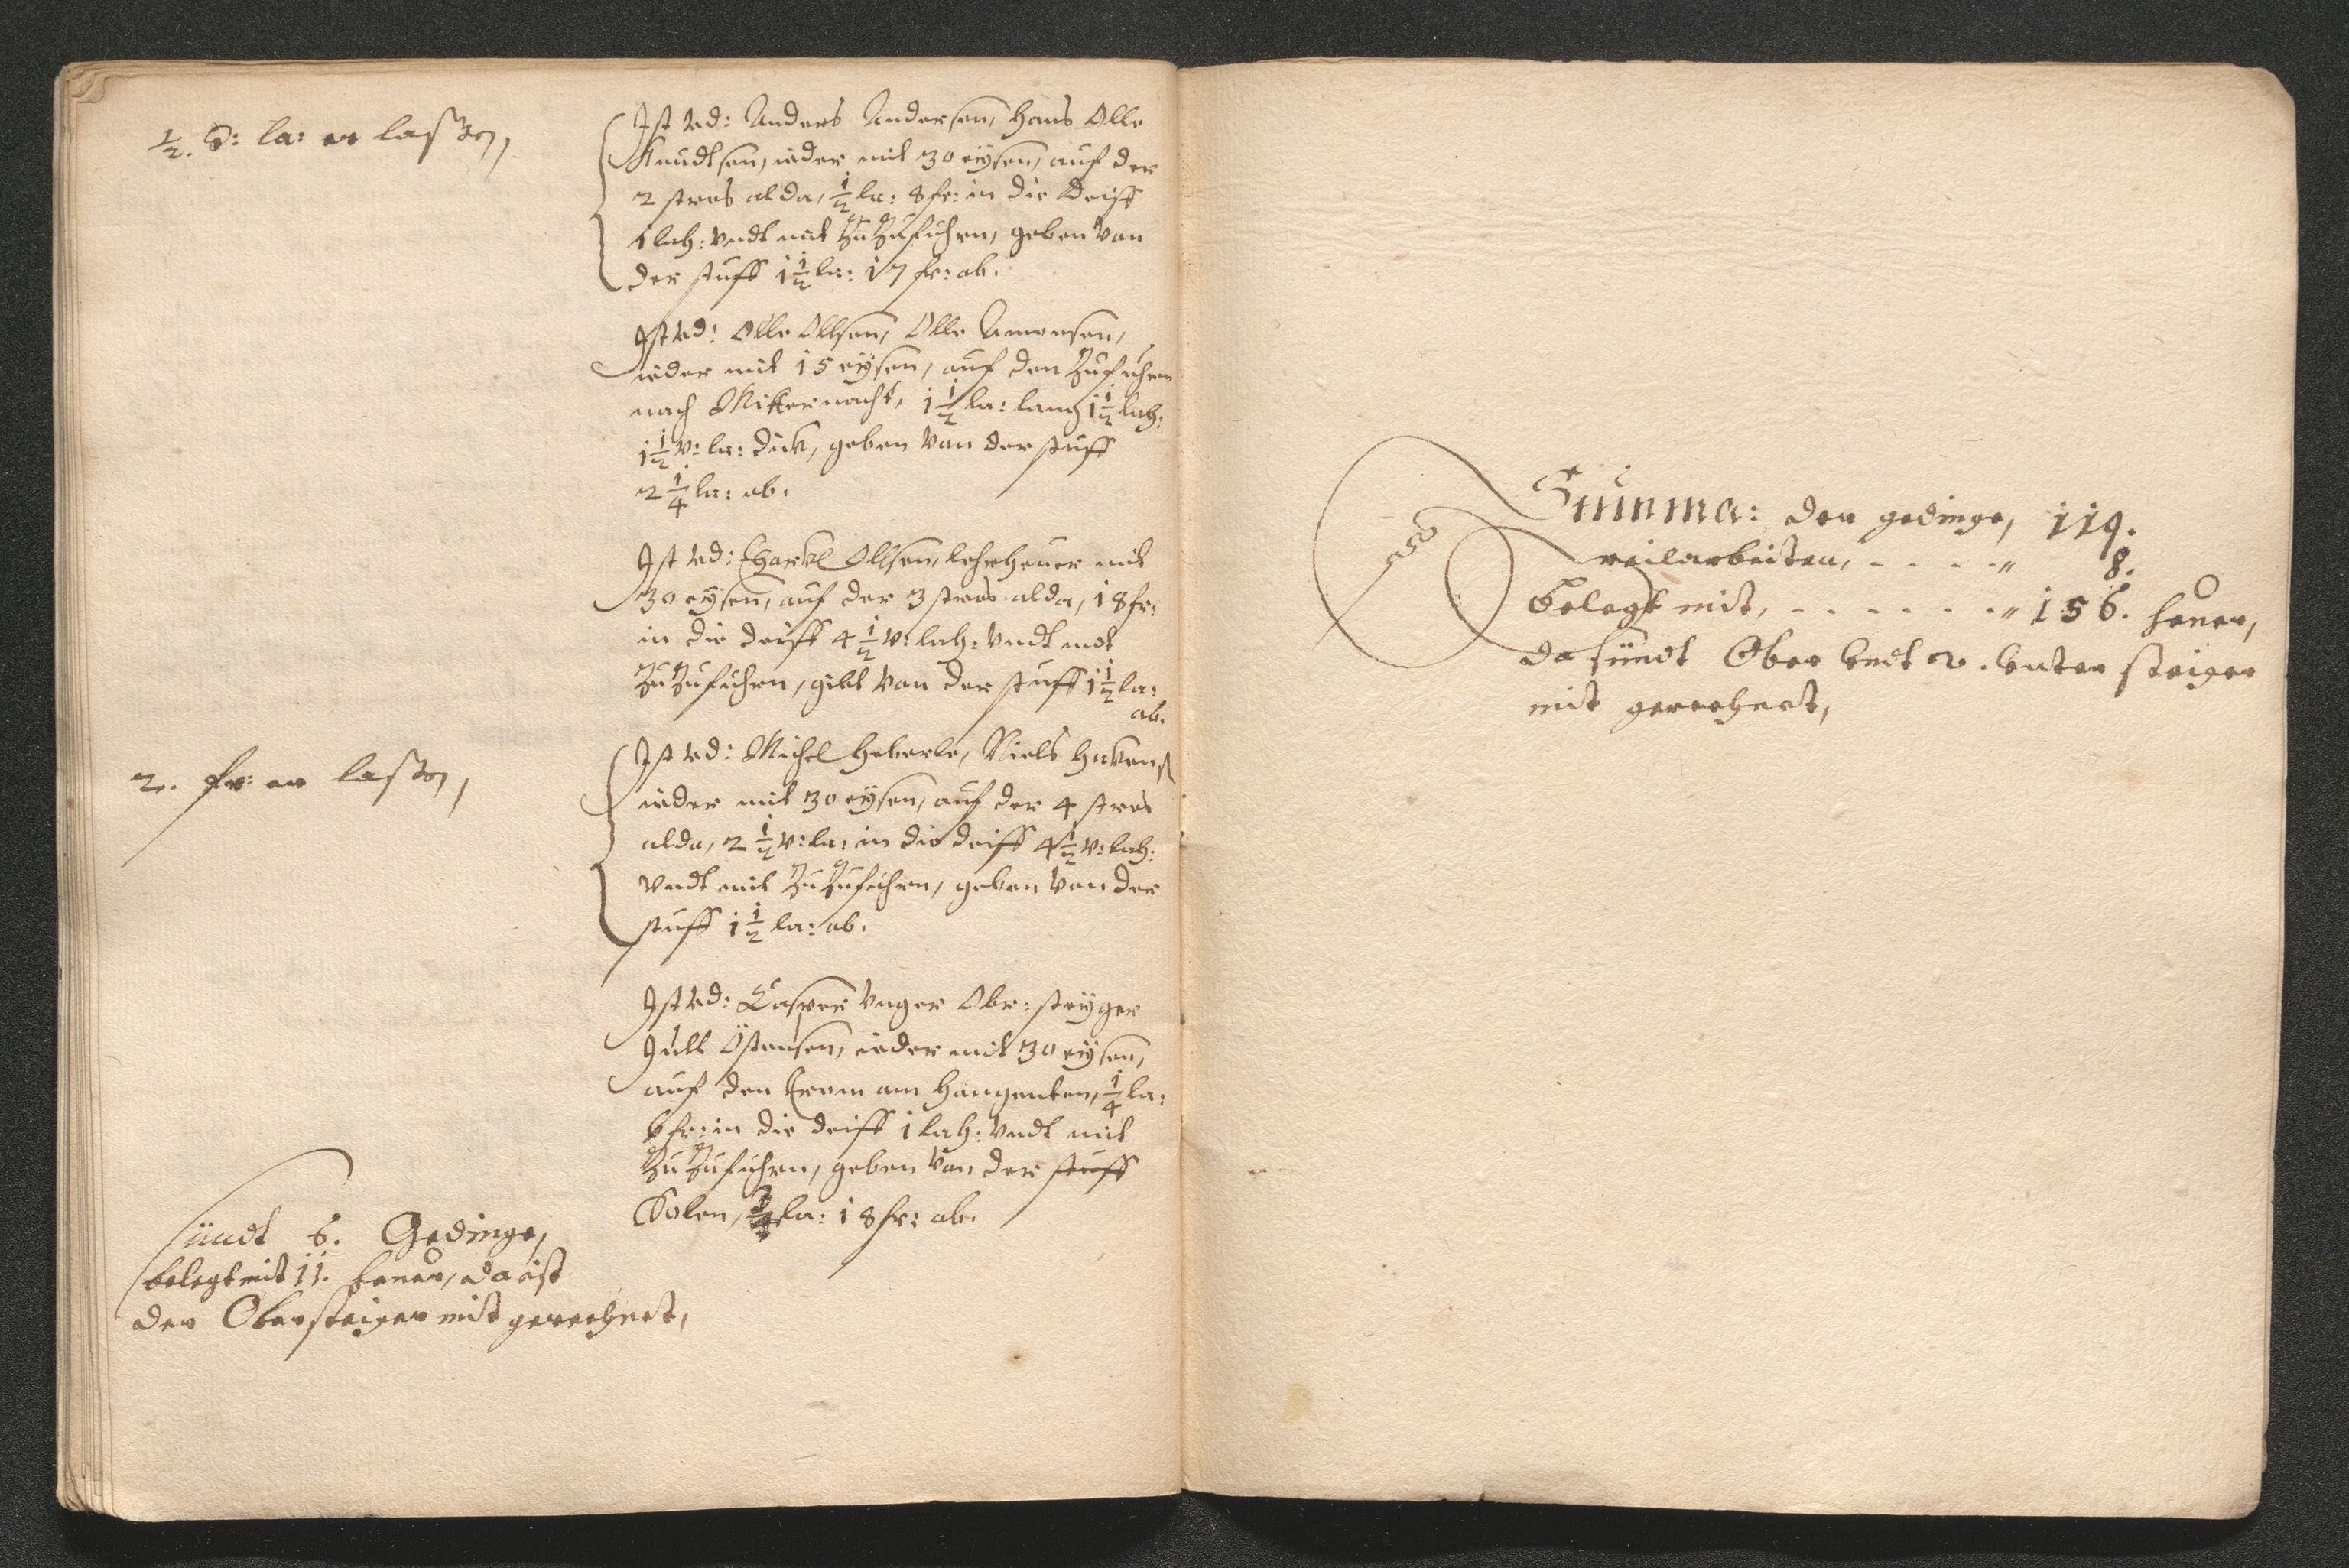 ½. v: la: er laßen,
Ist Vd: Anders Andersen, Hans Olle
Knudtsen, ieder mit 30 eÿsen, auf der
2 stros alda, ½ la: 8 fr: in die Deiff
1 lach: Vndt mit Zu Zufuhren, geben Van
der stuff 1½ la: 17 fr: ab.
Ist Vd: Olle Ollsen, Olle Amorsen,
ieder mit 15 eÿsen, auf den Zufuhren
nach Mitternacht, 1½ la: lang 1½ lach:
1½ v: la: dick, geben Van der stuff
2¼ la: ab.
Ist Vd: Ollsen, lehrheuer mit
30 eÿsen, auf der 3 stros alda, 18 fr:
in die deiff 4½ v: lach: Vndt mit
Zu Zufuhren, gibt Van der stuff 1½ la:
ab.
2. fr: er laßen,
Ist Vd: Michel Heberle, Niels Hakens
ieder mit 30 eÿsen, auf der 4 stros
alda, 2½ v: la: in die deiff 4½ v: lach:
Vndt mit Zu Zufuhren, geben Van der
stuff 1½ la: ab.
Ist Vd: Casper Vnger Obr: steÿger
Jull Östensen, ieder mit 30 eÿsen,
auf den Erom am Hangenten, ¼ la:
6 fr: in die deiff 1 lach: Vndt mit
Zu Zufuhren, geben Van der stuff
Solen, la: 18 fr: ab.
sündt 6. Gedinge,
belegt mit 11. heuer, da ist
der Obersteiger mit gerechnet,
Summa: der gedinge, 119.
weilarbeiten, - - - - " 8.
Belegt mit, - - - - - - " 156. heuer,
da sündt Ober Vndt 2. Vnter steiger
mit gerechnet,